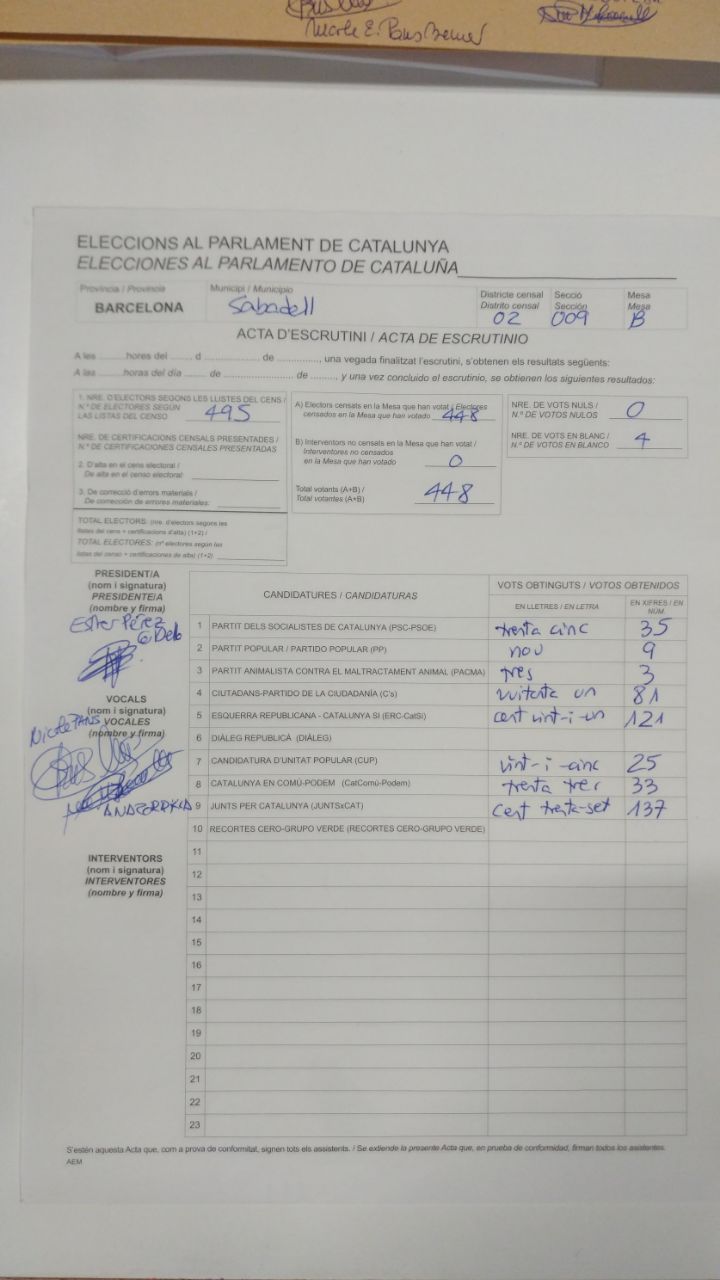 Nicole E. Pans Bernet
ELECCIONS AL PARLAMENT DE CATALUNYA
ELECCIONES AL PARLAMENTO DE CATALUÑA
Província / Provincia
BARCELONA
Municipi / Municipio
Sabadell
Districte censal
Distrito censal
02
Secció
Sección
009
Mesa
Mesa
B
ACTA D'ESCRUTINI / ACTA DE ESCRUTINIO
A les ........ hores del ...... d .................... de ............., una vegada finalitzat l'escrutini, s'obtenen els resultats següents:
A las ........ horas del día ...... de .................... de ........, y una vez concluido el escrutinio, se obtienen los siguientes resultados:
1. NRE. D'ELECTORS SEGONS LES LLISTES DEL CENS /
N.º DE ELECTORES SEGÚN
LAS LISTAS DEL CENSO
495
NRE. DE CERTIFICACIONS CENSALS PRESENTADES /
N.º DE CERTIFICACIONES CENSALES PRESENTADAS
2. D'alta en el cens electoral /
De alta en el censo electoral:
3. De correcció d'errors materials /
De corrección de errores materiales:
TOTAL ELECTORS: (nre. d'electors segons les
llistes del cens + certificacions d'alta) (1+2) /
TOTAL ELECTORES: (nº electores según las
listas del censo + certificaciones de alta) (1+2)
A) Electors censats en la Mesa que han votat / Electores
censados en la Mesa que han votado 448
B) Interventors no censats en la Mesa que han votat /
Interventores no censados
en la Mesa que han votado 0
Total votants (A+B) /
Total votantes (A+B)
448
NRE. DE VOTS NULS /
N.º DE VOTOS NULOS
0
NRE. DE VOTS EN BLANC /
N.º DE VOTOS EN BLANCO
4
PRESIDENT/A
(nom i signatura)
PRESIDENTE/A
(nombre y firma)
Esther Pérez
VOCALS
(nom i signatura)
VOCALES
(nombre y firma)
Nicole PANS
INTERVENTORS
(nom i signatura)
INTERVENTORES
(nombre y firma)
CANDIDATURES / CANDIDATURAS
VOTS OBTINGUTS / VOTOS OBTENIDOS
EN LLETRES / EN LETRA
EN XIFRES / EN NÚM.
1 PARTIT DELS SOCIALISTES DE CATALUNYA (PSC-PSOE) trenta cinc 35
2 PARTIT POPULAR / PARTIDO POPULAR (PP) nou 9
3 PARTIT ANIMALISTA CONTRA EL MALTRACTAMENT ANIMAL (PACMA) tres 3
4 CIUTADANS-PARTIDO DE LA CIUDADANÍA (C's) vuitata un 81
5 ESQUERRA REPUBLICANA - CATALUNYA SI (ERC-CatSi) cent vint-i-un 121
6 DIÀLEG REPUBLICÀ (DIÀLEG)
7 CANDIDATURA D'UNITAT POPULAR (CUP) vint-i-cinc 25
8 CATALUNYA EN COMÚ-PODEM (CatComú-Podem) trenta tres 33
9 JUNTS PER CATALUNYA (JUNTSxCAT) cent trenta-set 137
10 RECORTES CERO-GRUPO VERDE (RECORTES CERO-GRUPO VERDE)
11
12
13
14
15
16
17
18
19
20
21
22
23
S'estén aquesta Acta que, com a prova de conformitat, signen tots els assistents. / Se extiende la presente Acta que, en prueba de conformidad, firman todos los asistentes.
AEM